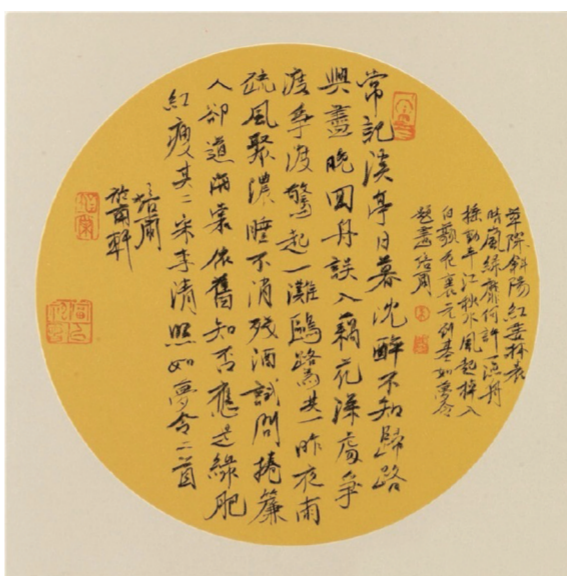 草際斜陽紅委林表
晴嵐綠靡何許一漁舟
搖動半江秋水風起棹入
白蘋花裏元劉基如夢令
題畫培蘭
常記溪亭日暮沈醉不知歸路
興盡晚回舟誤入藕花深處爭
渡爭渡驚起一灘鷗鷺其一昨夜雨
疏風聚濃睡不消殘酒試問捲簾
人卻道海棠依舊知否應是綠肥
紅瘦其二宋李清照如夢令二首
培蘭
於蘭軒